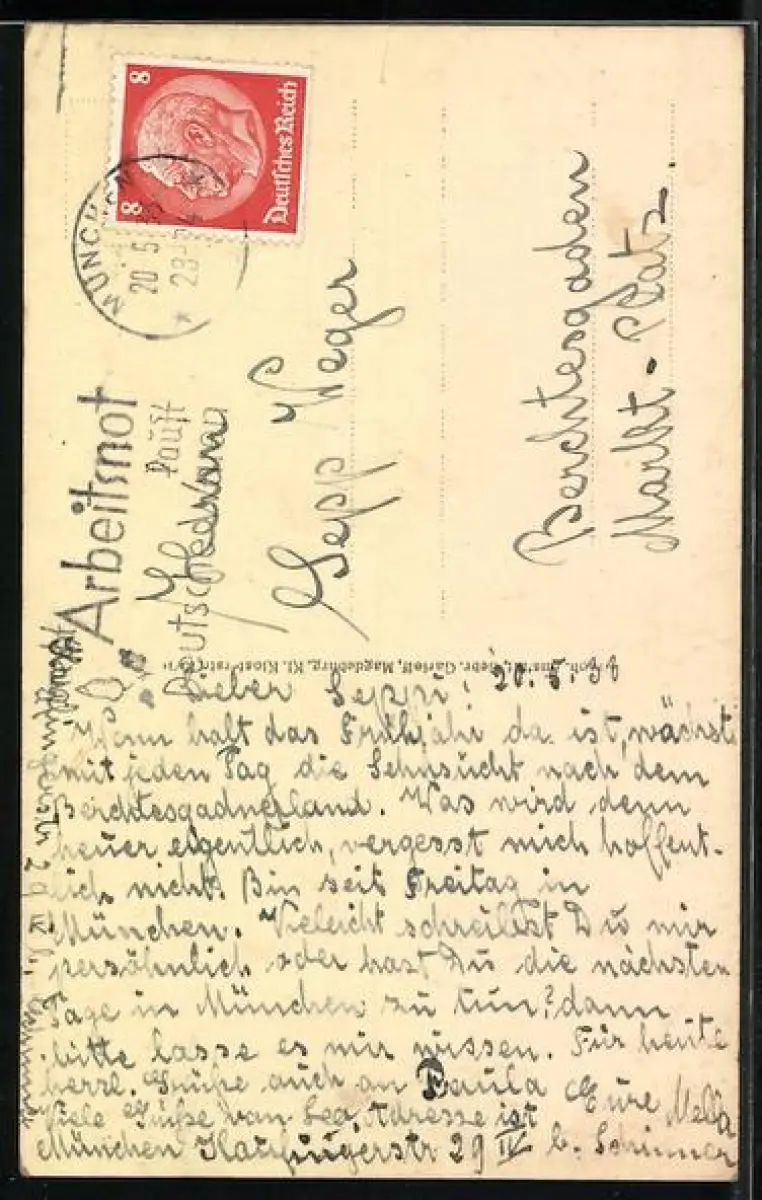 8
8
Deutsches Reich
MÜNCHEN
20 5
Arbeitsnot
kauft
Sepp Weger
Berchtesgaden
Markt-Platz.
Gebr. Garloff, Magdeburg, Kl. Klosterstr.
20.5.
Lieber Seppi!
Wenn halt das Frühjahr da ist, wächst
mit jeden Tag die Sehnsücht nach dem
Berchtesgadnerland. Was wird denn
heuer eigentlich, vergesst mich hoffent-
lich nicht! Bin seit Freitag in
München. Vieleicht schreibst Du mir
persöhnlich oder hast Du die nächsten
Tage in München zu tun? dann
bitte lasse es mir wissen. Für heute
herzl. Grüße auch an Paula Eure Mella
Viele Grüße von Leo, Adresse ist
München 29 IV b. Schinner